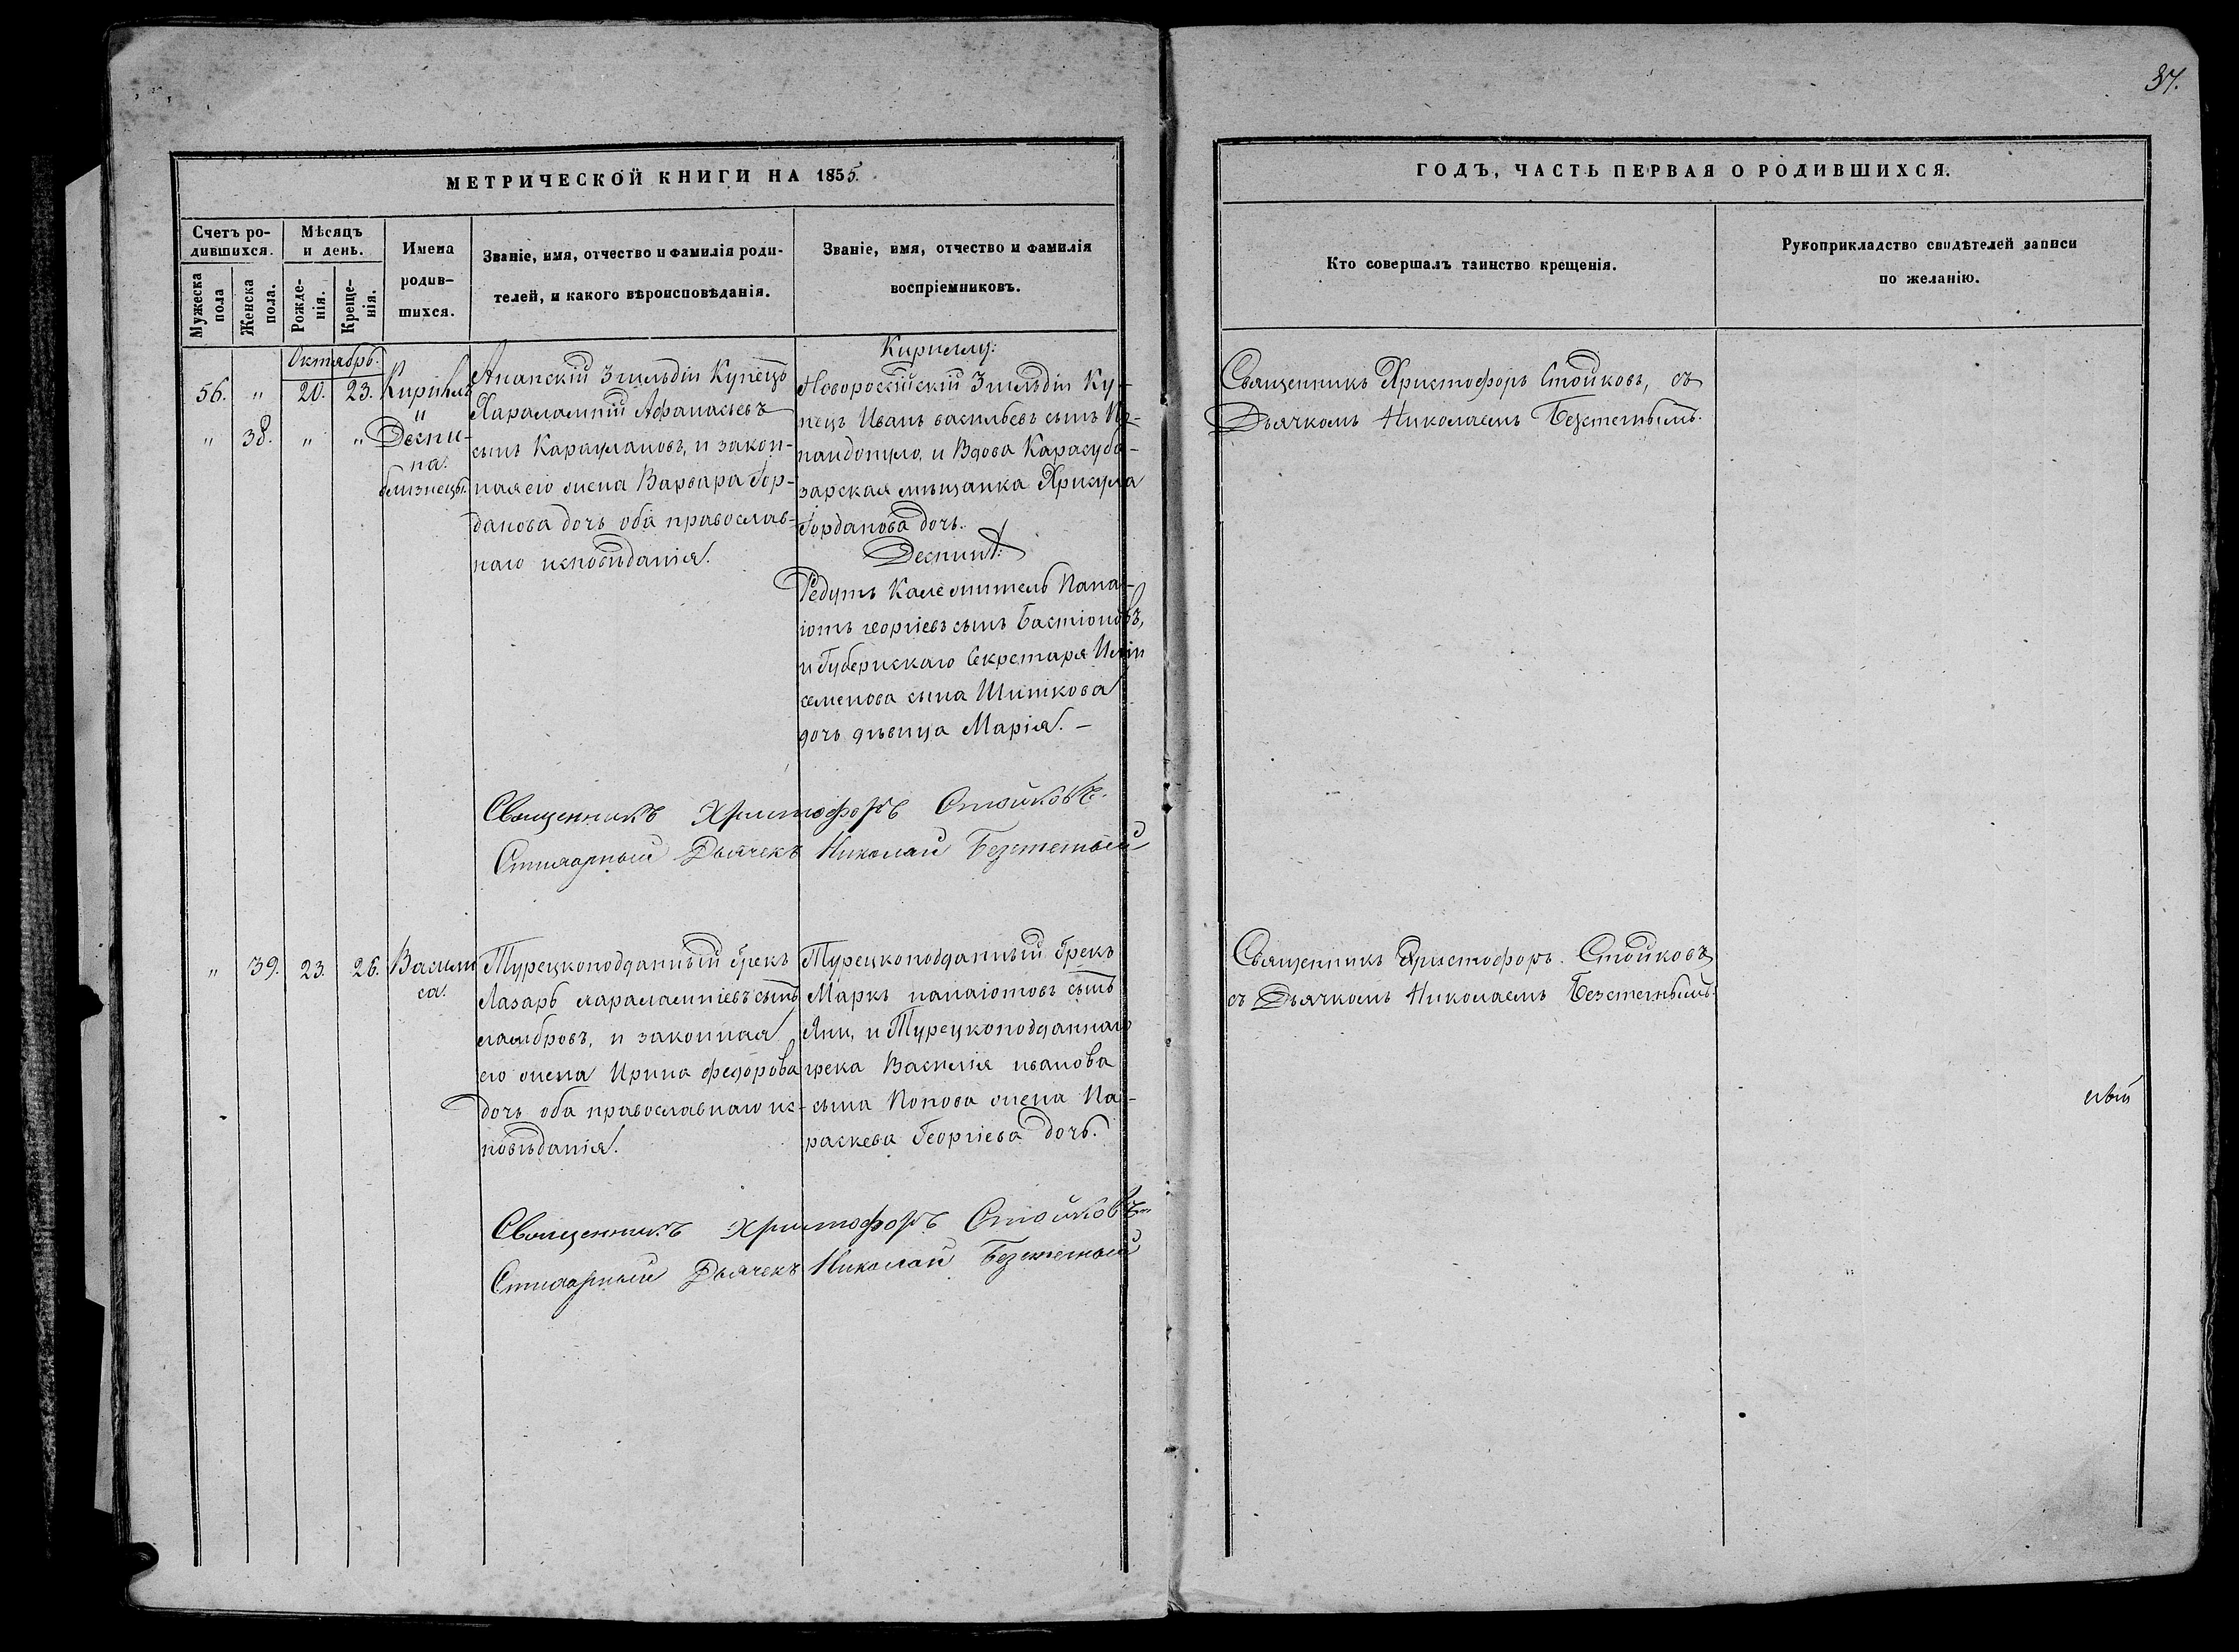 37.
МЕТРИЧЕСКОЙ КНИГИ НА 1855.
Счетъ ро-
дившихся.
Мужеска
пола
Женска
пола.
Мѣсяцъ
и день.
Рожде-
нія.
Креще-
нія.
Имена
родив-
шихся.
Званіе, имя, отчество и фамилія роди-
телей, и какого вѣроисповѣданія.
Званіе, имя, отчество и фамилія
воспріемниковъ.
ГОДЪ, ЧАСТЬ ПЕРВАЯ О РОДИВШИХСЯ.
Кто совершалъ таинство крещенія.
Рукоприкладство свидѣтелей записи
по желанію.
Октябрь.
56. " 20. 23. Кириллъ
"
" 38. " " Деспи-
на.
близнецы.
Анапскій 3 гильдіи Купецъ
Харалампій Афанасьевъ
сынъ Караулановъ, и закон-
ная его жена Варвара Гор-
данова дочь оба православ-
наго исповѣданія.
Кириллу:
Новоросійскій 3 гильдіи Ку-
пецъ Иванъ васильевъ сынъ
и Вдова Карасуба-
зарская мѣщанка
Горданова дочь.
Деспинѣ:
Редутъ Кале житель Пана-
іотъ георгіевъ сынъ Бастіоновъ,
и Губернскаго Секретаря Иліи
семенова сына Шишкова
дочь дѣвица Марія. -
Священникъ Христофоръ Стойковъ, съ
Дьячкомъ Николаемъ Безстетнымъ.
Священникъ Христофоръ Стойковъ.
Стихарный Дьячекъ Николай Безстетный
" 39. 23. 26. Васили
са.
Турецкоподданный Грекъ
Лазарь харалампіевъ сынъ
ламбровъ, и законная
его жена Ирина федорова
дочь оба православнаго ис-
повѣданія.
Турецкоподданный Грекъ
Маркъ панаіотовъ сынъ
Яни, и Турецкоподданнаго
грека Василія иванова
сына Попова жена Па-
раскева Георгіева дочь.
Священникъ Христофоръ Стойковъ
съ Дьячкомъ Николаемъ Безстетнымъ.
Священникъ Христофоръ Стойковъ
Стихарный Дьячекъ Николай Безстетный